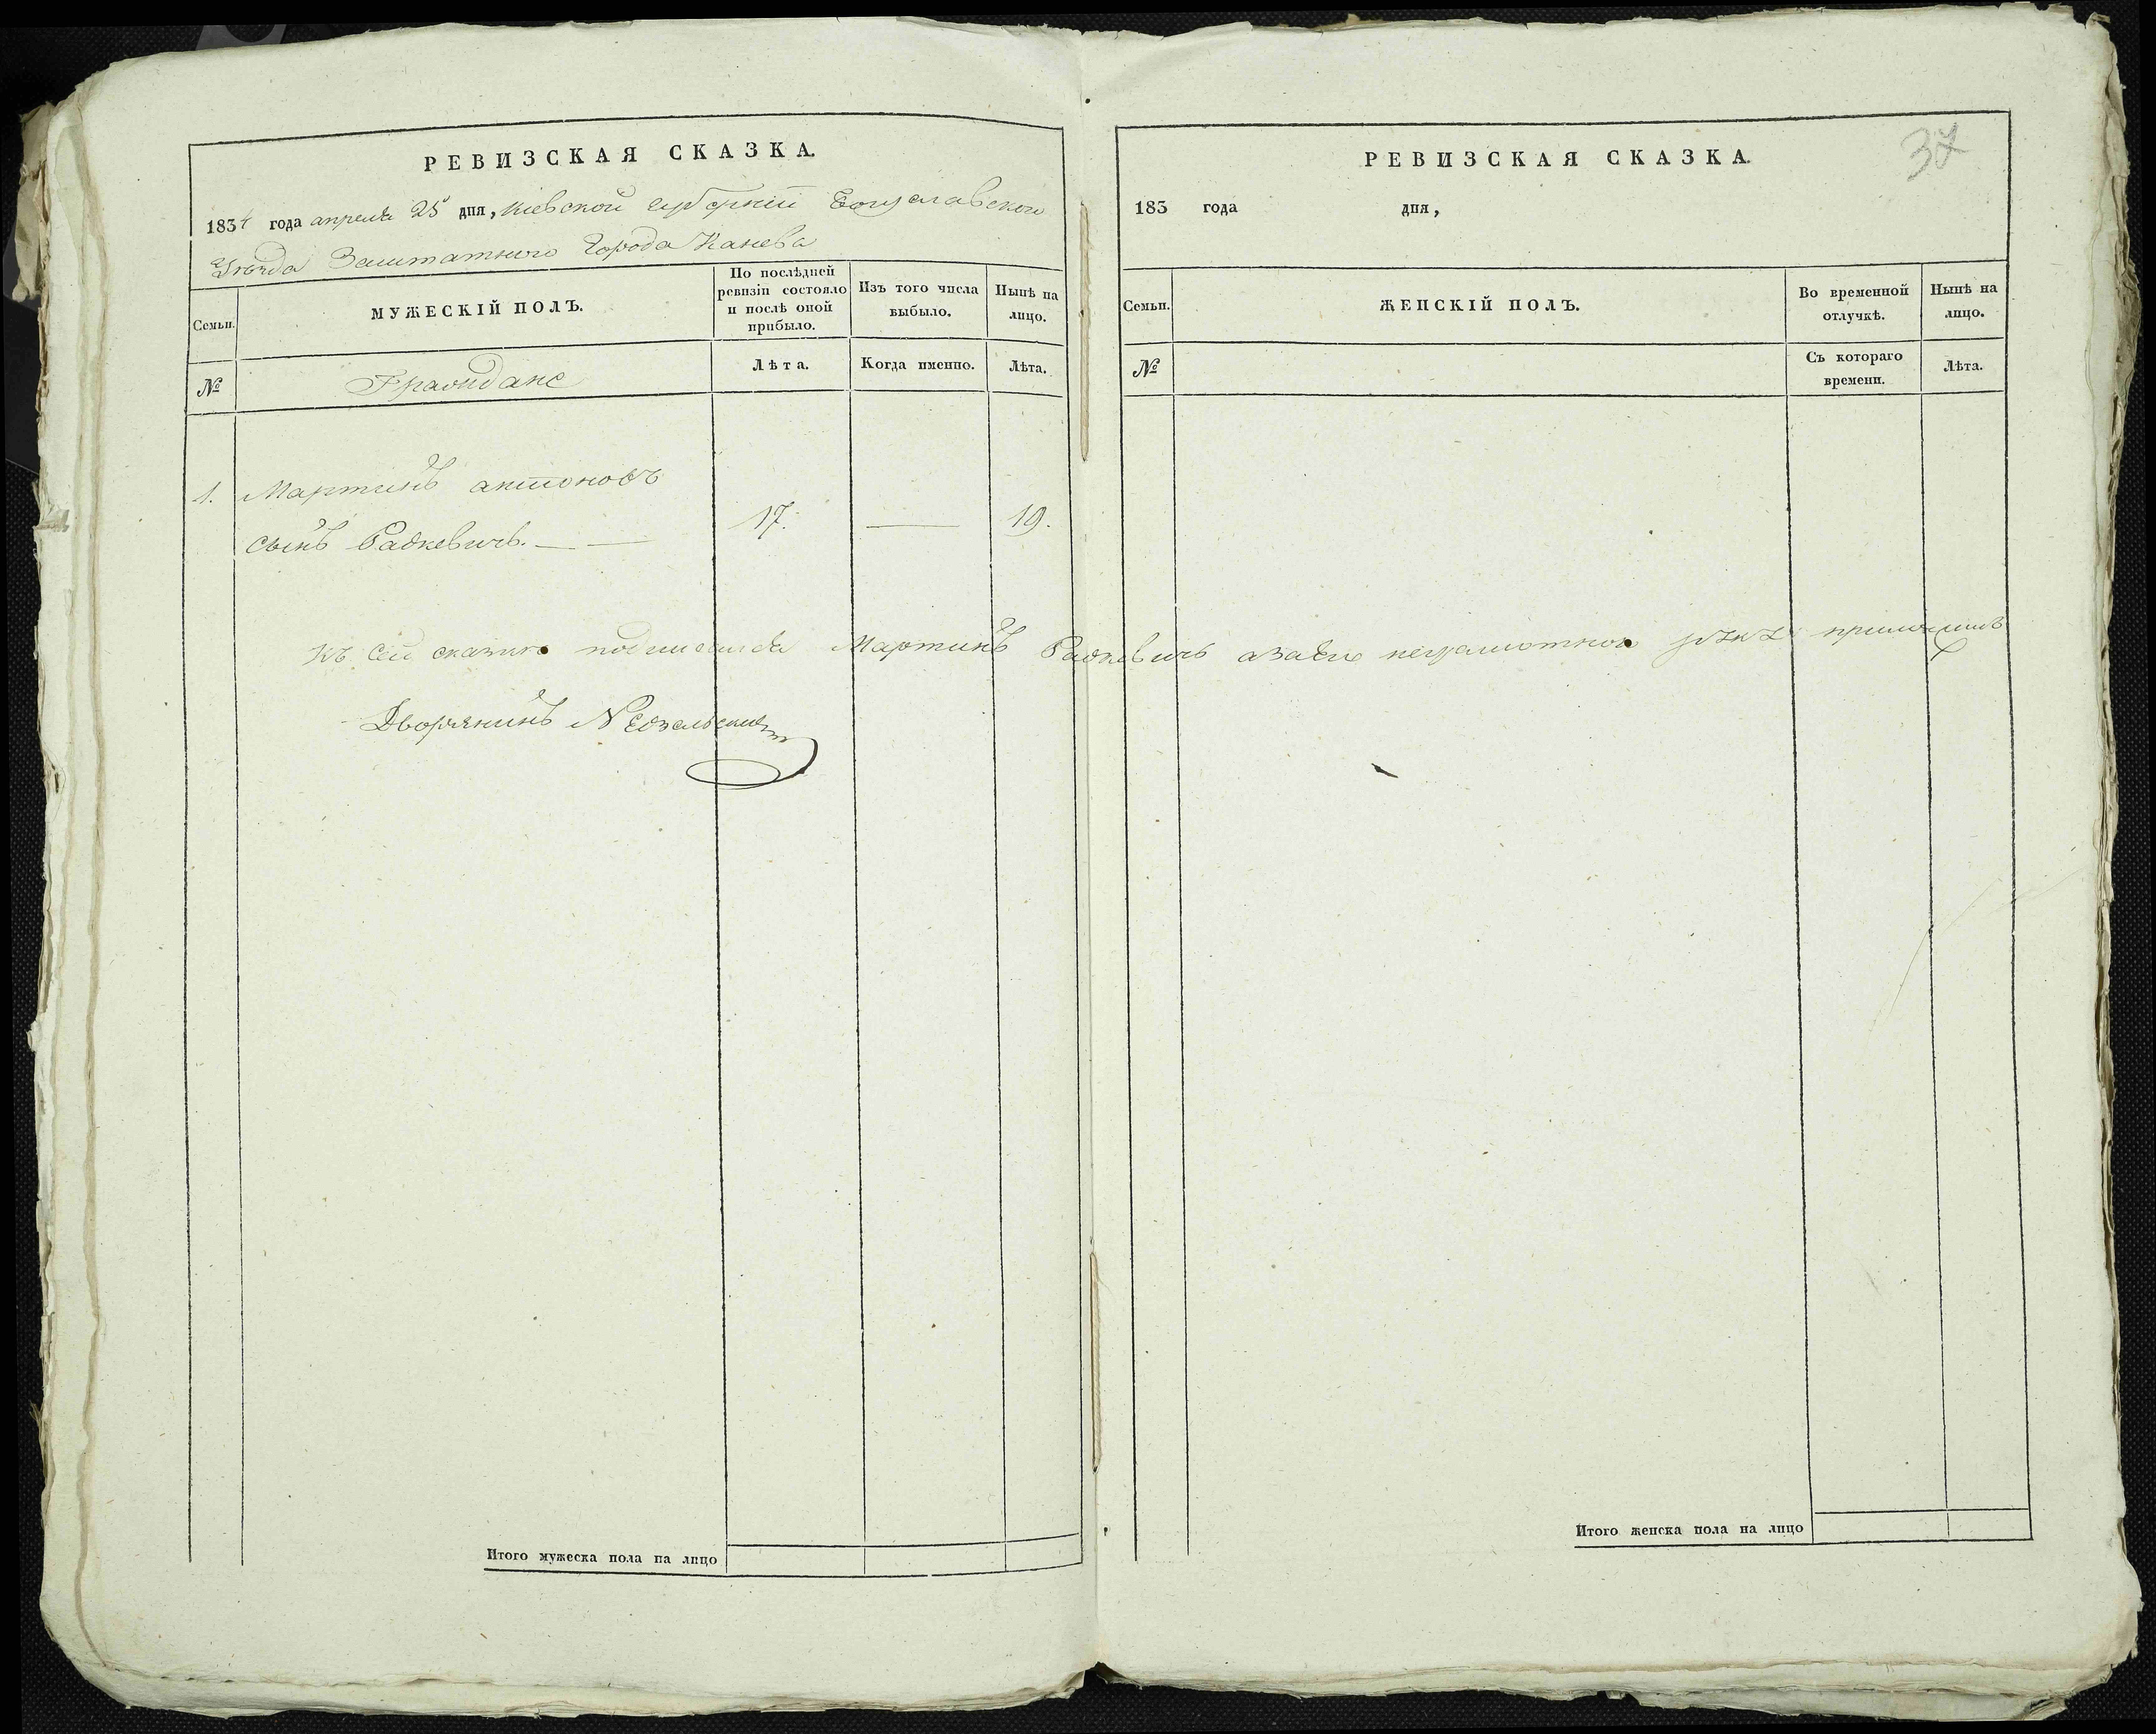 РЕВИЗСКАЯ СКАЗКА.
1834 года апреля 25 дня, Кіевской губерніи Богуславского
Уезда Заштатного Города Канева
Семьи.
МУЖЕСКІЙ ПОЛЪ.
По послѣдней ревизіи состояло и послѣ оной прибыло.
Изъ того числа выбыло.
Нынѣ на лицо.
№
Граждане
Лѣта.
Когда именно.
Лѣта.
1. Мартинъ антоновъ
сынъ Радкевичь. 17. 19.
Къ сей сказке подписался Мартинъ Радкевичь азаего неграмотного приложилъ
Дворянинъ
Итого мужеска пола на лицо
37
РЕВИЗСКАЯ СКАЗКА.
183 года дня,
Семьи.
ЖЕНСКІЙ ПОЛЪ.
Во временной отлучкѣ.
Нынѣ на лицо.
№
Съ котораго времени.
Лѣта.
Итого женска пола на лицо